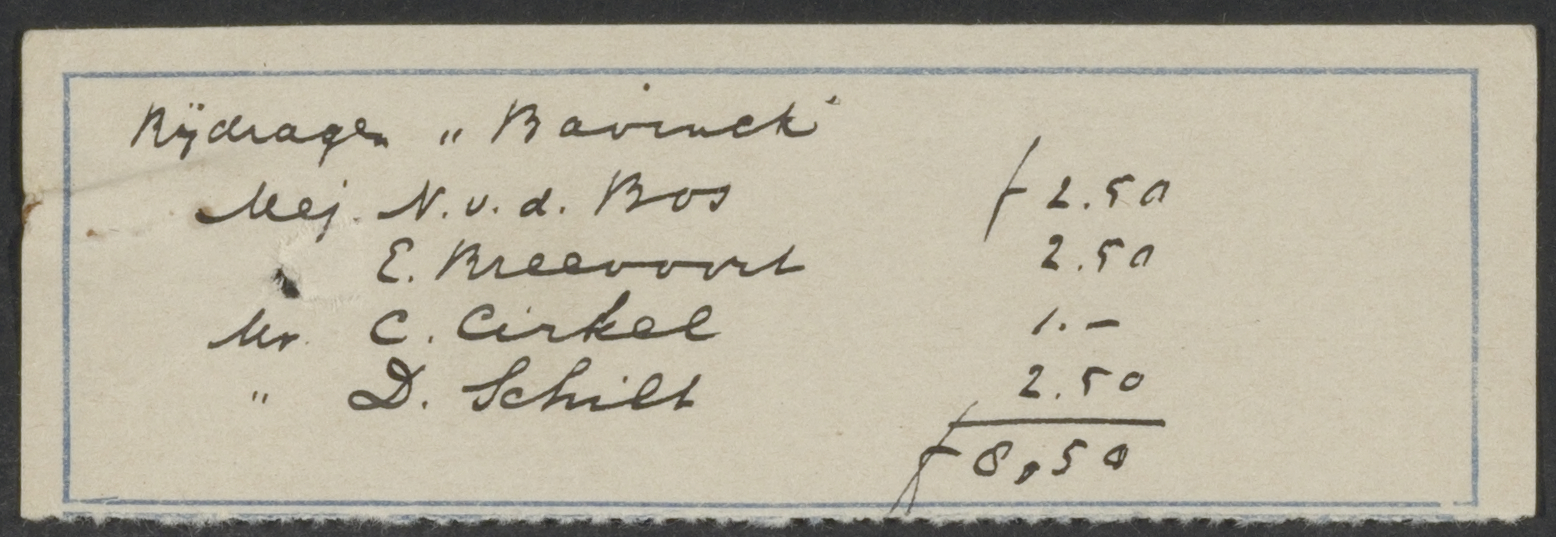 Bijdragen „Bavinck"
Mej. N. v. d. Bos f 2.50
E. Breevoort 2.50
Mr. C. Cirkel 1.-
" D. Schilt 2.50
f 8,50